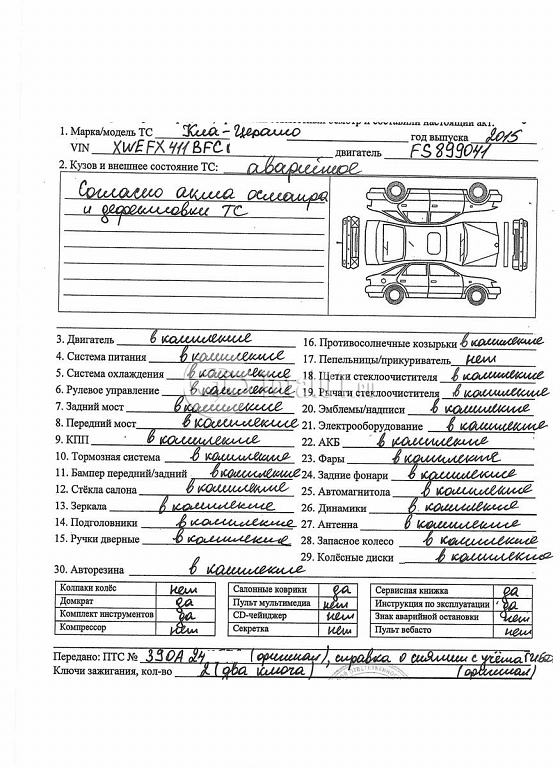 осмотр и составили настоящий акт.
1. Марка/модель ТС Киа-Церато год выпуска 2015
VIN XWEFX411BFC двигатель FS899041
2. Кузов и внешнее состояние ТС: аварийное
Согласно акта осмотра
и дефектовки ТС
3. Двигатель в комплекте
4. Система питания в комплекте
5. Система охлаждения в комплекте
6. Рулевое управление в комплекте
7. Задний мост в комплекте
8. Передний мост в комплекте
9. КПП в комплекте
10. Тормозная система в комплекте
11. Бампер передний/задний в комплекте
12. Стёкла салона в комплекте
13. Зеркала в комплекте
14. Подголовники в комплекте
15. Ручки дверные в комплекте
16. Противосолнечные козырьки в комплекте
17. Пепельницы/прикуриватель нет
18. Щетки стеклоочистителя в комплекте
19. Рычаги стеклоочистителя в комплекте
20. Эмблемы/надписи в комплекте
21. Электрооборудование в комплекте
22. АКБ в комплекте
23. Фары в комплекте
24. Задние фонари в комплекте
25. Автомагнитола в комплекте
26. Динамики в комплекте
27. Антенна в комплекте
28. Запасное колесо в комплекте
29. Колёсные диски в комплекте
30. Авторезина в комплекте
Колпаки колёс нет
Домкрат да
Комплект инструментов да
Компрессор нет
Салонные коврики да
Пульт мультимедиа нет
CD-чейнджер нет
Секретка нет
Сервисная книжка да
Инструкция по эксплуатации да
Знак аварийной остановки нет
Пульт вебасто нет
Передано: ПТС № 39ОА 24 (оригинал), справка о снятии с учёта ГИБДД
Ключи зажигания, кол-во 2 (два ключа) (оригинал)